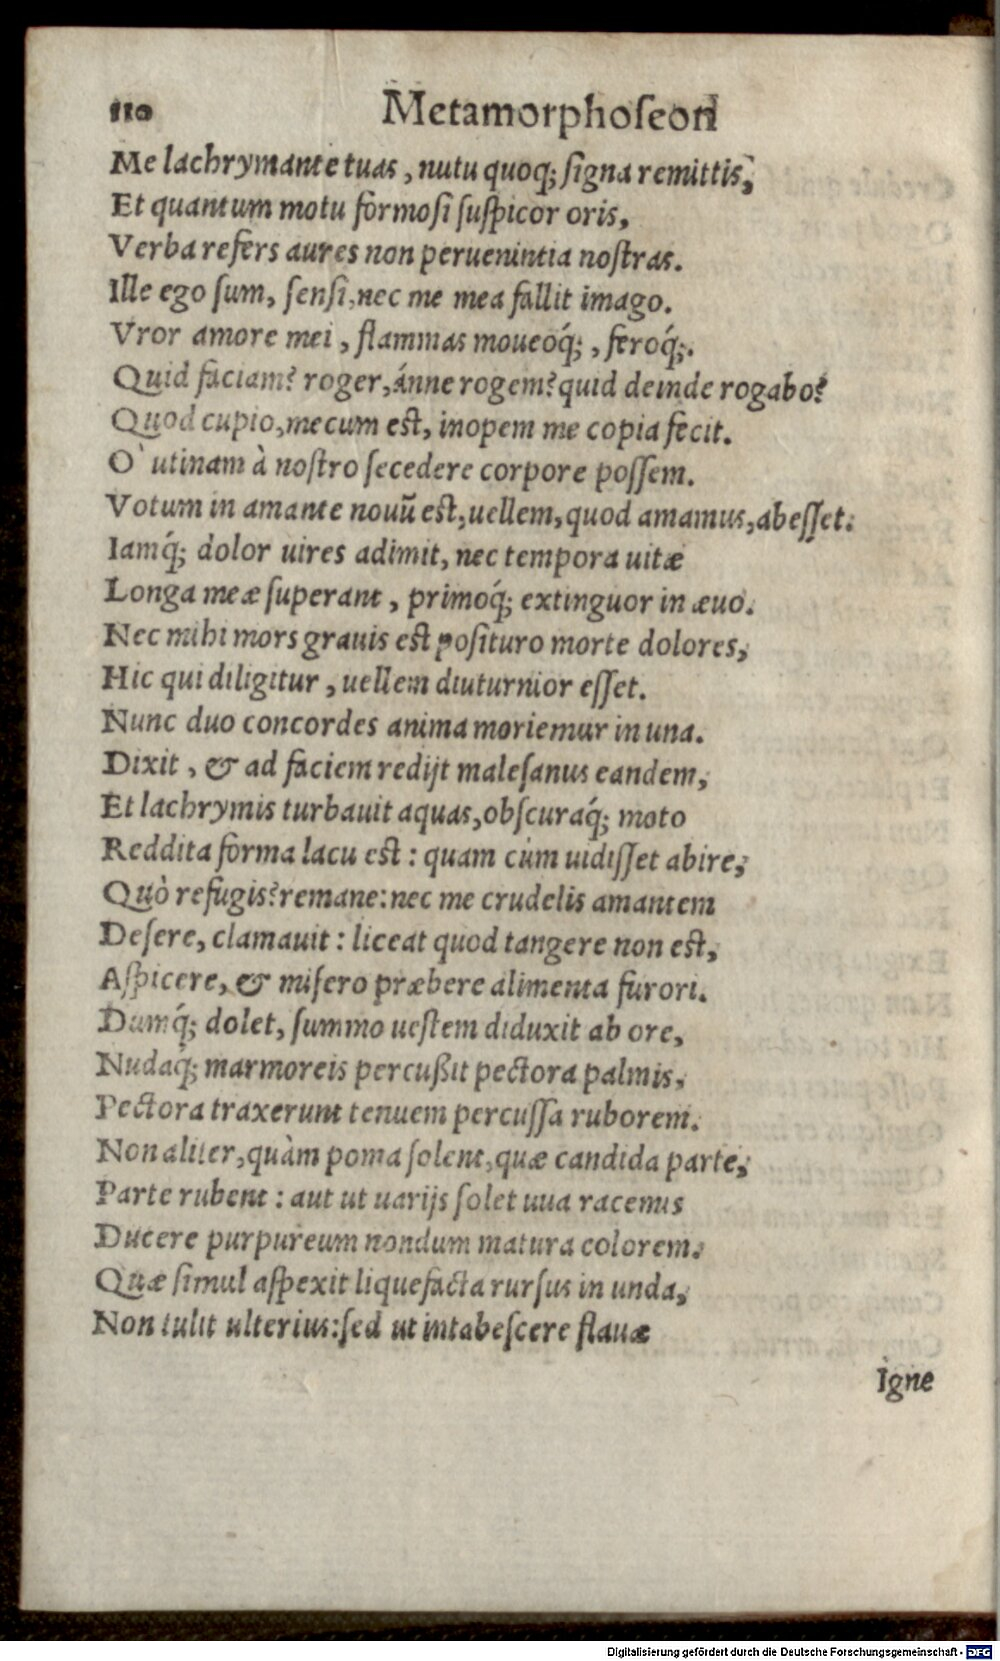 110 Metamorphoſeon
Me lachrymante tuas, nutu quoq; ſigna remittis,
Et quantum motu formoſi ſuſpicor oris,
Verba refers aures non peruenintia noſtras.
Ille ego ſum, ſenſi, nec me mea fallit imago.
Vror amore mei, flammas moueoq́;, feroq́;.
Quid faciam? roger, ánne rogem? quid deinde rogabo?
Quod cupio, mecum eſt, inopem me copia fecit.
O` utinam à noſtro ſecedere corpore poſſem.
Votum in amante nouũ eſt, uellem, quod amamus, abeſſet.
Iamq́; dolor uires adimit, nec tempora uitæ
Longa meæ ſuperant, primoq́; extinguor in æuo.
Nec mihi mors grauis eſt poſituro morte dolores,
Hic qui diligitur, uellem diuturnior eſſet.
Nunc duo concordes anima moriemur in una.
Dixit, & ad faciem redijt maleſanus eandem,
Et lachrymis turbauit aquas, obſcuraq́; moto
Reddita forma lacu eſt: quam cùm uidiſſet abire,
Quò refugis? remane: nec me crudelis amantem
Deſere, clamauit: liceat quod tangere non eſt,
Aſpicere, & miſero præbere alimenta furori.
Dumq́; dolet, ſummo ueſtem diduxit ab ore,
Nudaq́; marmoreis percußit pectora palmis,
Pectora traxerunt tenuem percuſſa ruborem.
Non aliter, quàm poma ſolent, quæ candida parte,
Parte rubent: aut ut uarijs ſolet uua racemis
Ducere purpureum nondum matura colorem.
Quæ ſimul aſpexit liquefacta rurſus in unda,
Non tulit ulterius: ſed ut intabeſcere flauæ
Igne
Digitalisierung gefördert durch die Deutsche Forschungsgemeinschaft - DFG